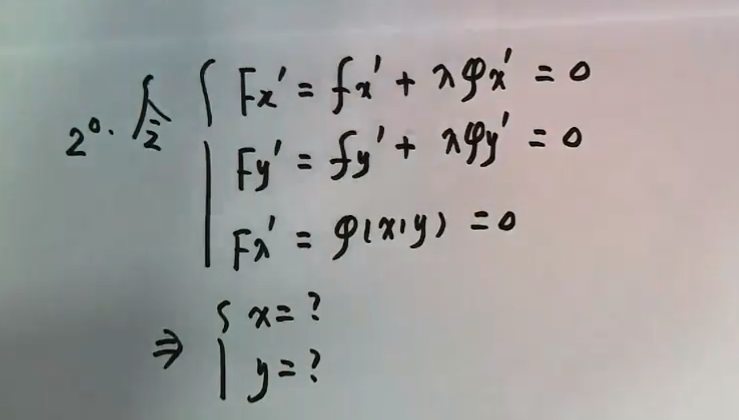 2°. 令 { Fx' = fx' + λφx' = 0
Fy' = fy' + λφy' = 0
Fλ' = φ(x,y) = 0
⇒ { x = ?
y = ?